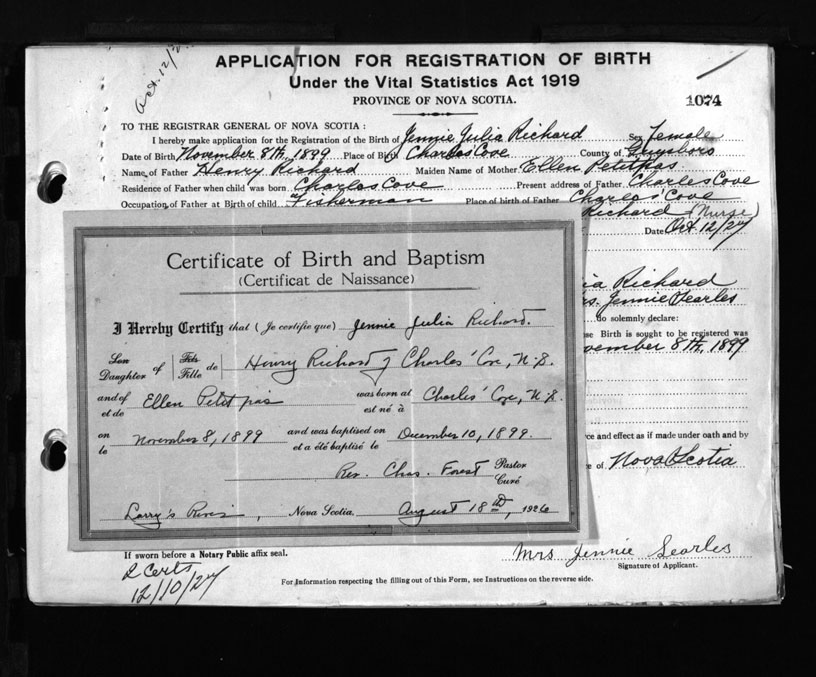 Oct. 12/27
APPLICATION FOR REGISTRATION OF BIRTH
Under the Vital Statistics Act 1919
PROVINCE OF NOVA SCOTIA.
1074
TO THE REGISTRAR GENERAL OF NOVA SCOTIA :
I hereby make application for the Registration of the Birth of Jennie Julia Richard Sex Female
Date of Birth November 8th, 1899 Place of Birth Charles Cove County of Guysboro
Name of Father Henry Richard Maiden Name of Mother Ellen Petitpas
Residence of Father when child was born Charles Cove Present address of Father Charles Cove
Occupation of Father at Birth of child Fisherman Place of birth of Father Charles Cove
Richard (Nurse)
Date Oct 12/27
Certificate of Birth and Baptism
(Certificat de Naissance)
I Hereby Certify that (Je certifie que) Jennie Julia Richard.
Son Daughter of Fils Fille de Henry Richard of Charles' Cove, N.S.
and of et de Ellen Petit pas was born at est né à Charles' Cove, N.S.
on le November 8, 1899 and was baptised on et a été baptisé le December 10, 1899.
Rev. Chas. Forest Pastor Curé
Larry's River, Nova Scotia, August 18th, 1926
ia Richard
rs. Jennie Searles
do solemnly declare:
se Birth is sought to be registered was
vember 8th, 1899
ce and effect as if made under oath and by
e of Nova Scotia
If sworn before a Notary Public affix seal.
Mrs Jennie Searles
Signature of Applicant.
2 Certs
12/10/27
For Information respecting the filling out of this Form, see Instructions on the reverse side.